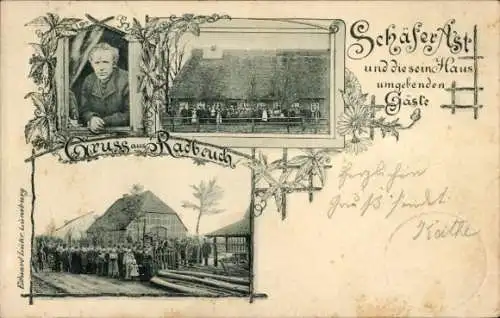 Schäfer Ast
und die sein Haus
umgebenden
Gäste
Gruss aus Radbruch
Herzlichen
Gruß sendet
Käthe
Eduard Lühr, Lüneburg